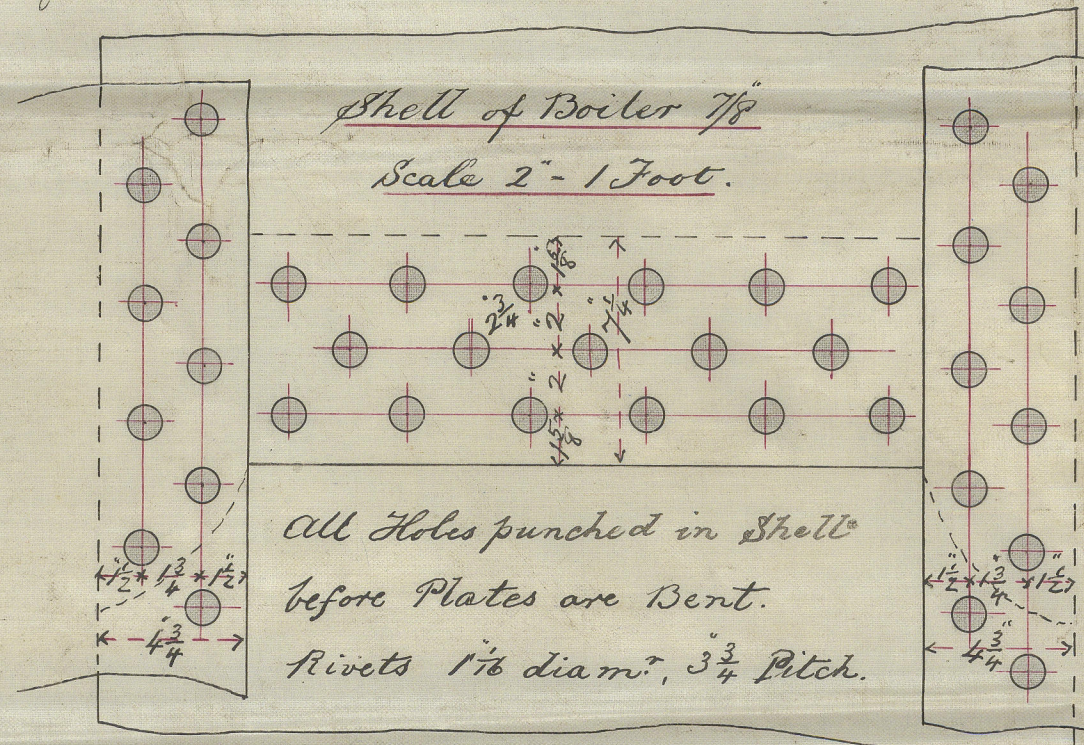 Shell of Boiler 7/8"
Scale 2" - 1 Foot.
1 5/8"
2 3/4"
2"
7 1/4"
2"
1 5/8
All Holes punched in Shell
before Plates are Bent.
Rivets 1 1/16" diamr., 3 3/4" Pitch.
1 1/2" 1 3/4" 1 1/2"
4 3/4"
1 1/2" 1 3/4" 1 1/2"
4 3/4"